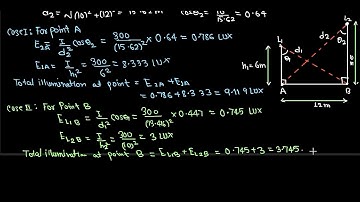 d₂ = √(10)²+(12)² = 15.62 m  cosθ₂ = 10/15.62 = 0.64
Case I: For point A
E₂A = I/d₂² cosθ₂ = 300/(15.62)² × 0.64 = 0.786 LUX
E₁A = I/h₁² = 300/6² = 8.333 LUX
Total illumination at point = E₂A + E₁A
= 0.786 + 8.333 = 9.119 LUX
Case II: For Point B
E_L1B = I/d₁² cosθ₁ = 300/(13.416)² × 0.447 = 0.745 LUX
E_L2B = I/h₂² = 300/(10)² = 3 LUX
Total illumination at point B = E_L1B + E_L2B = 0.745 + 3 = 3.745.
L₁
L₂
θ₁
d₁
d₂
θ₂
h₁ = 6m
A
B
12m